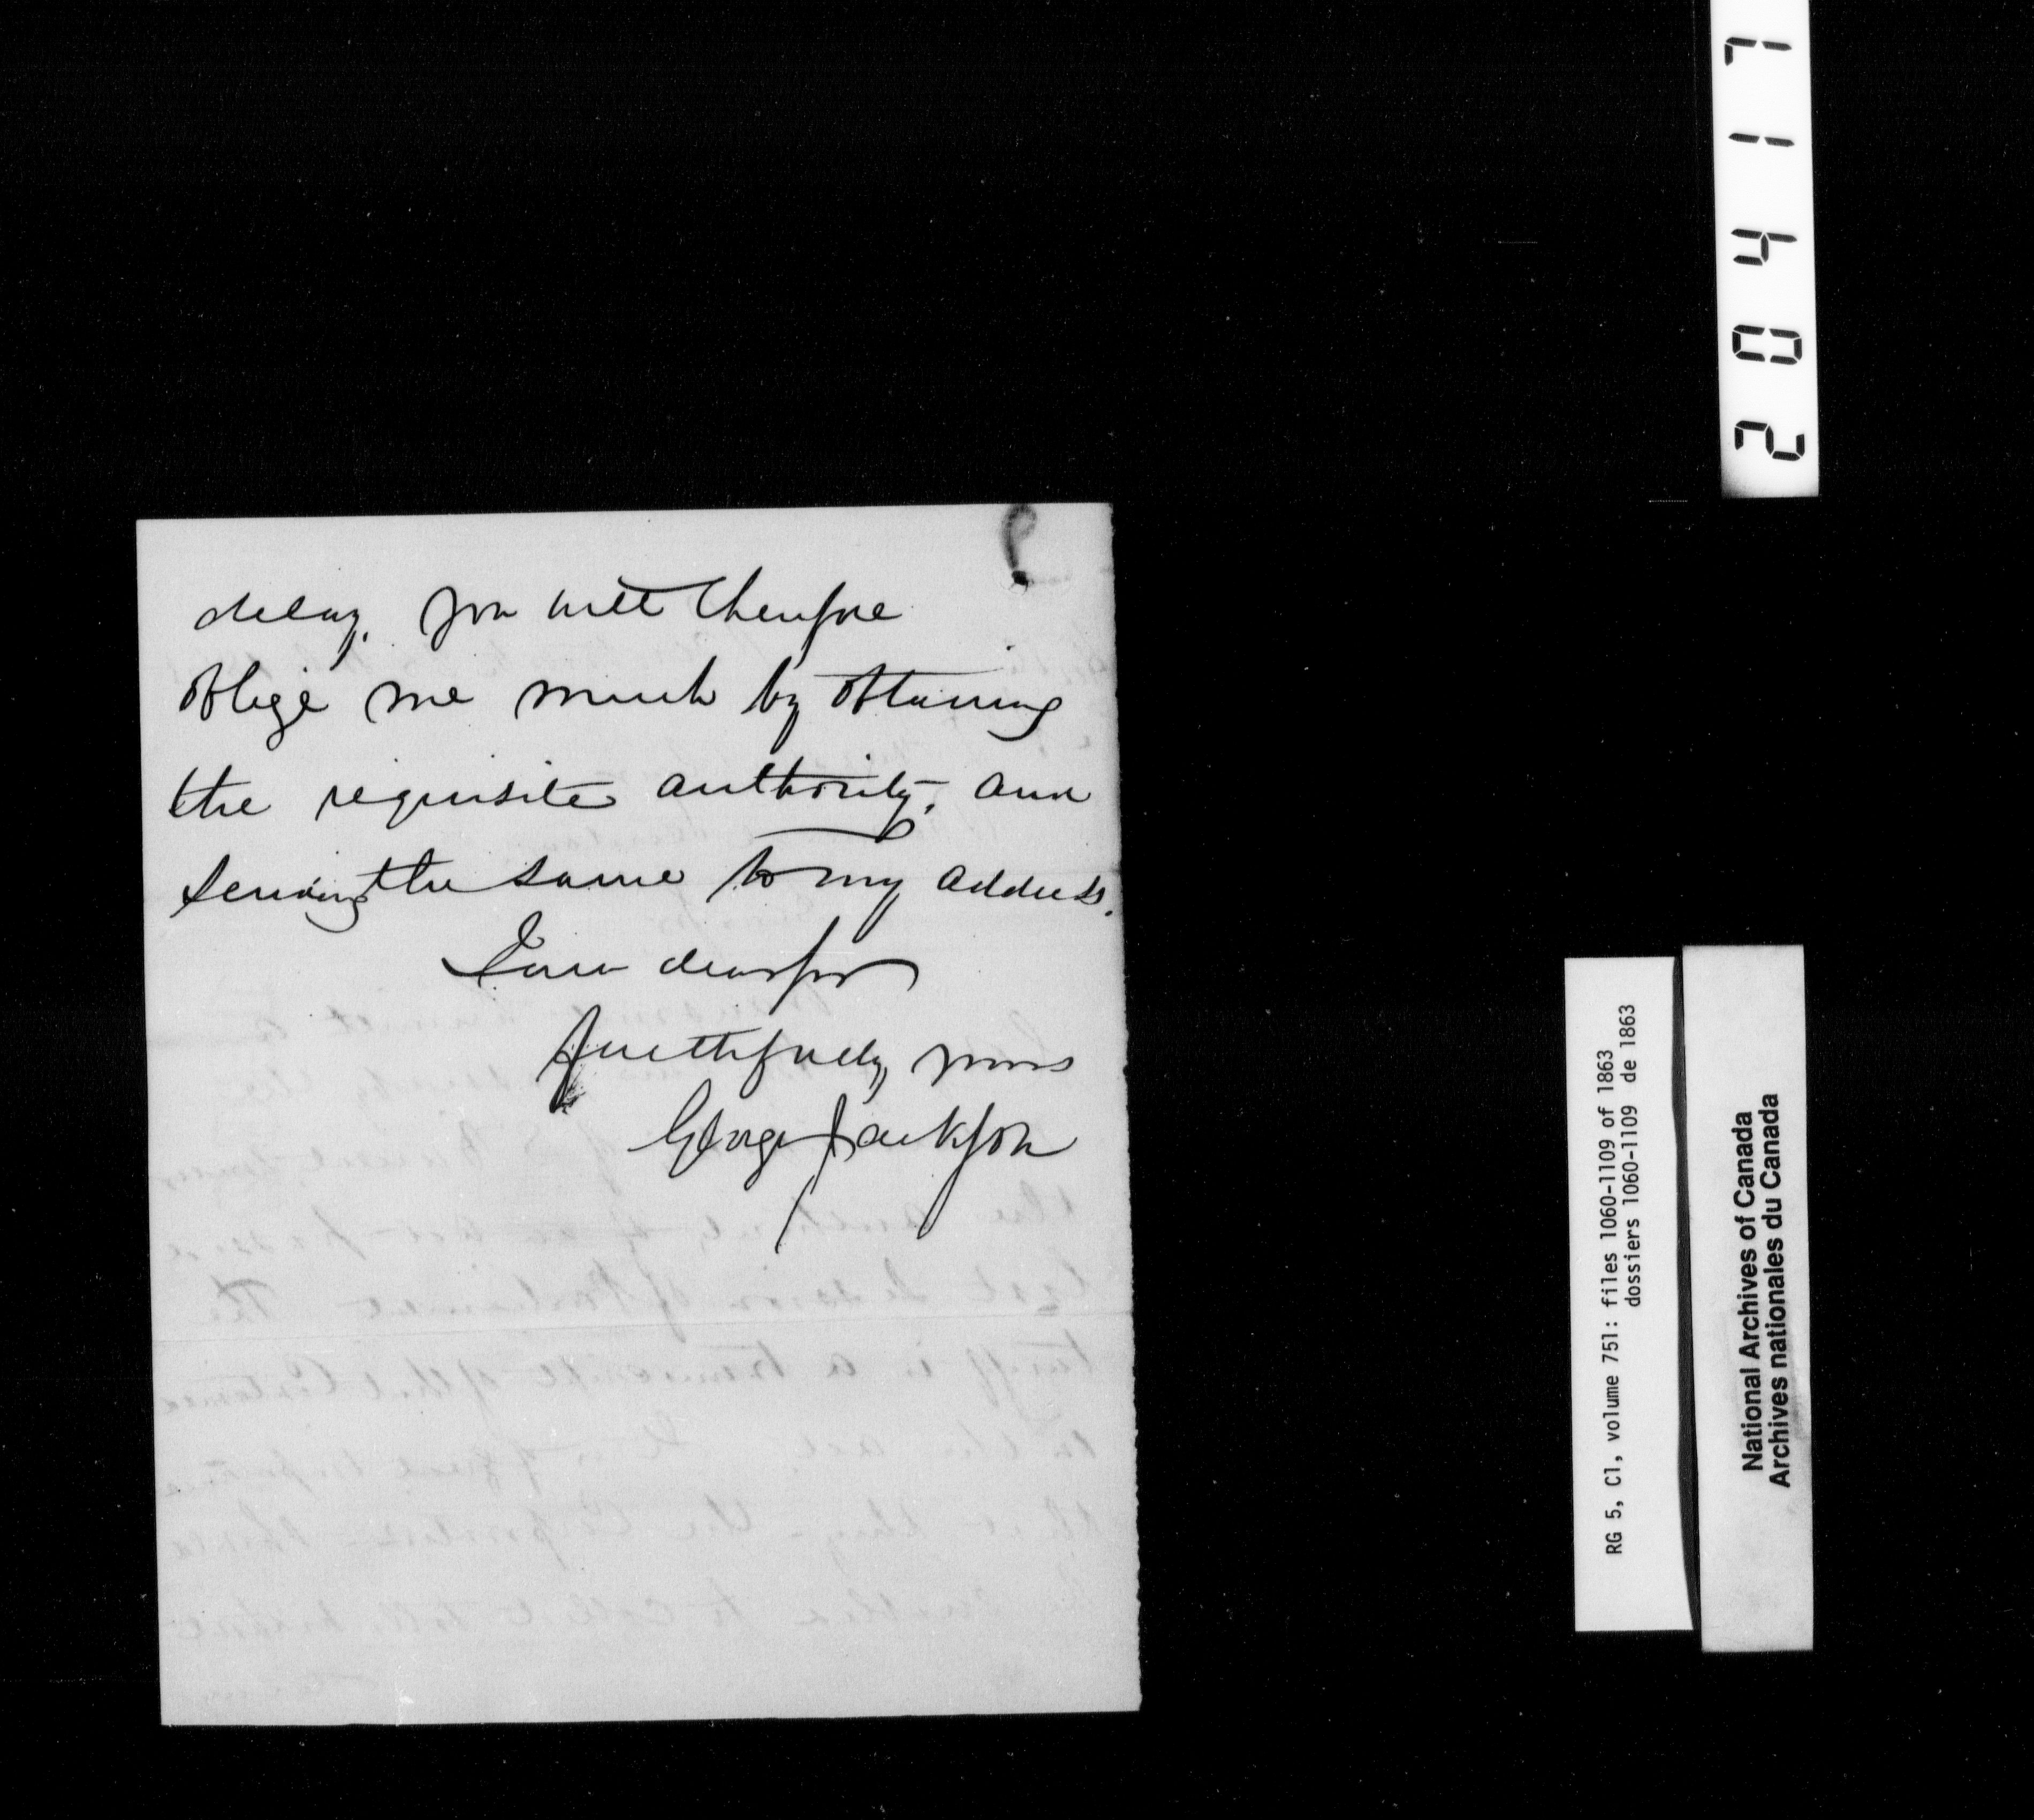 delay. you will therefore
oblige me much by obtaining
the requisite authority, and
sending the same to my address.
I am dear sir
faithfully yours
George Jackson
20417
RG 5, C1, volume 751: files 1060-1109 of 1863
dossiers 1060-1109 de 1863
National Archives of Canada
Archives nationales du Canada